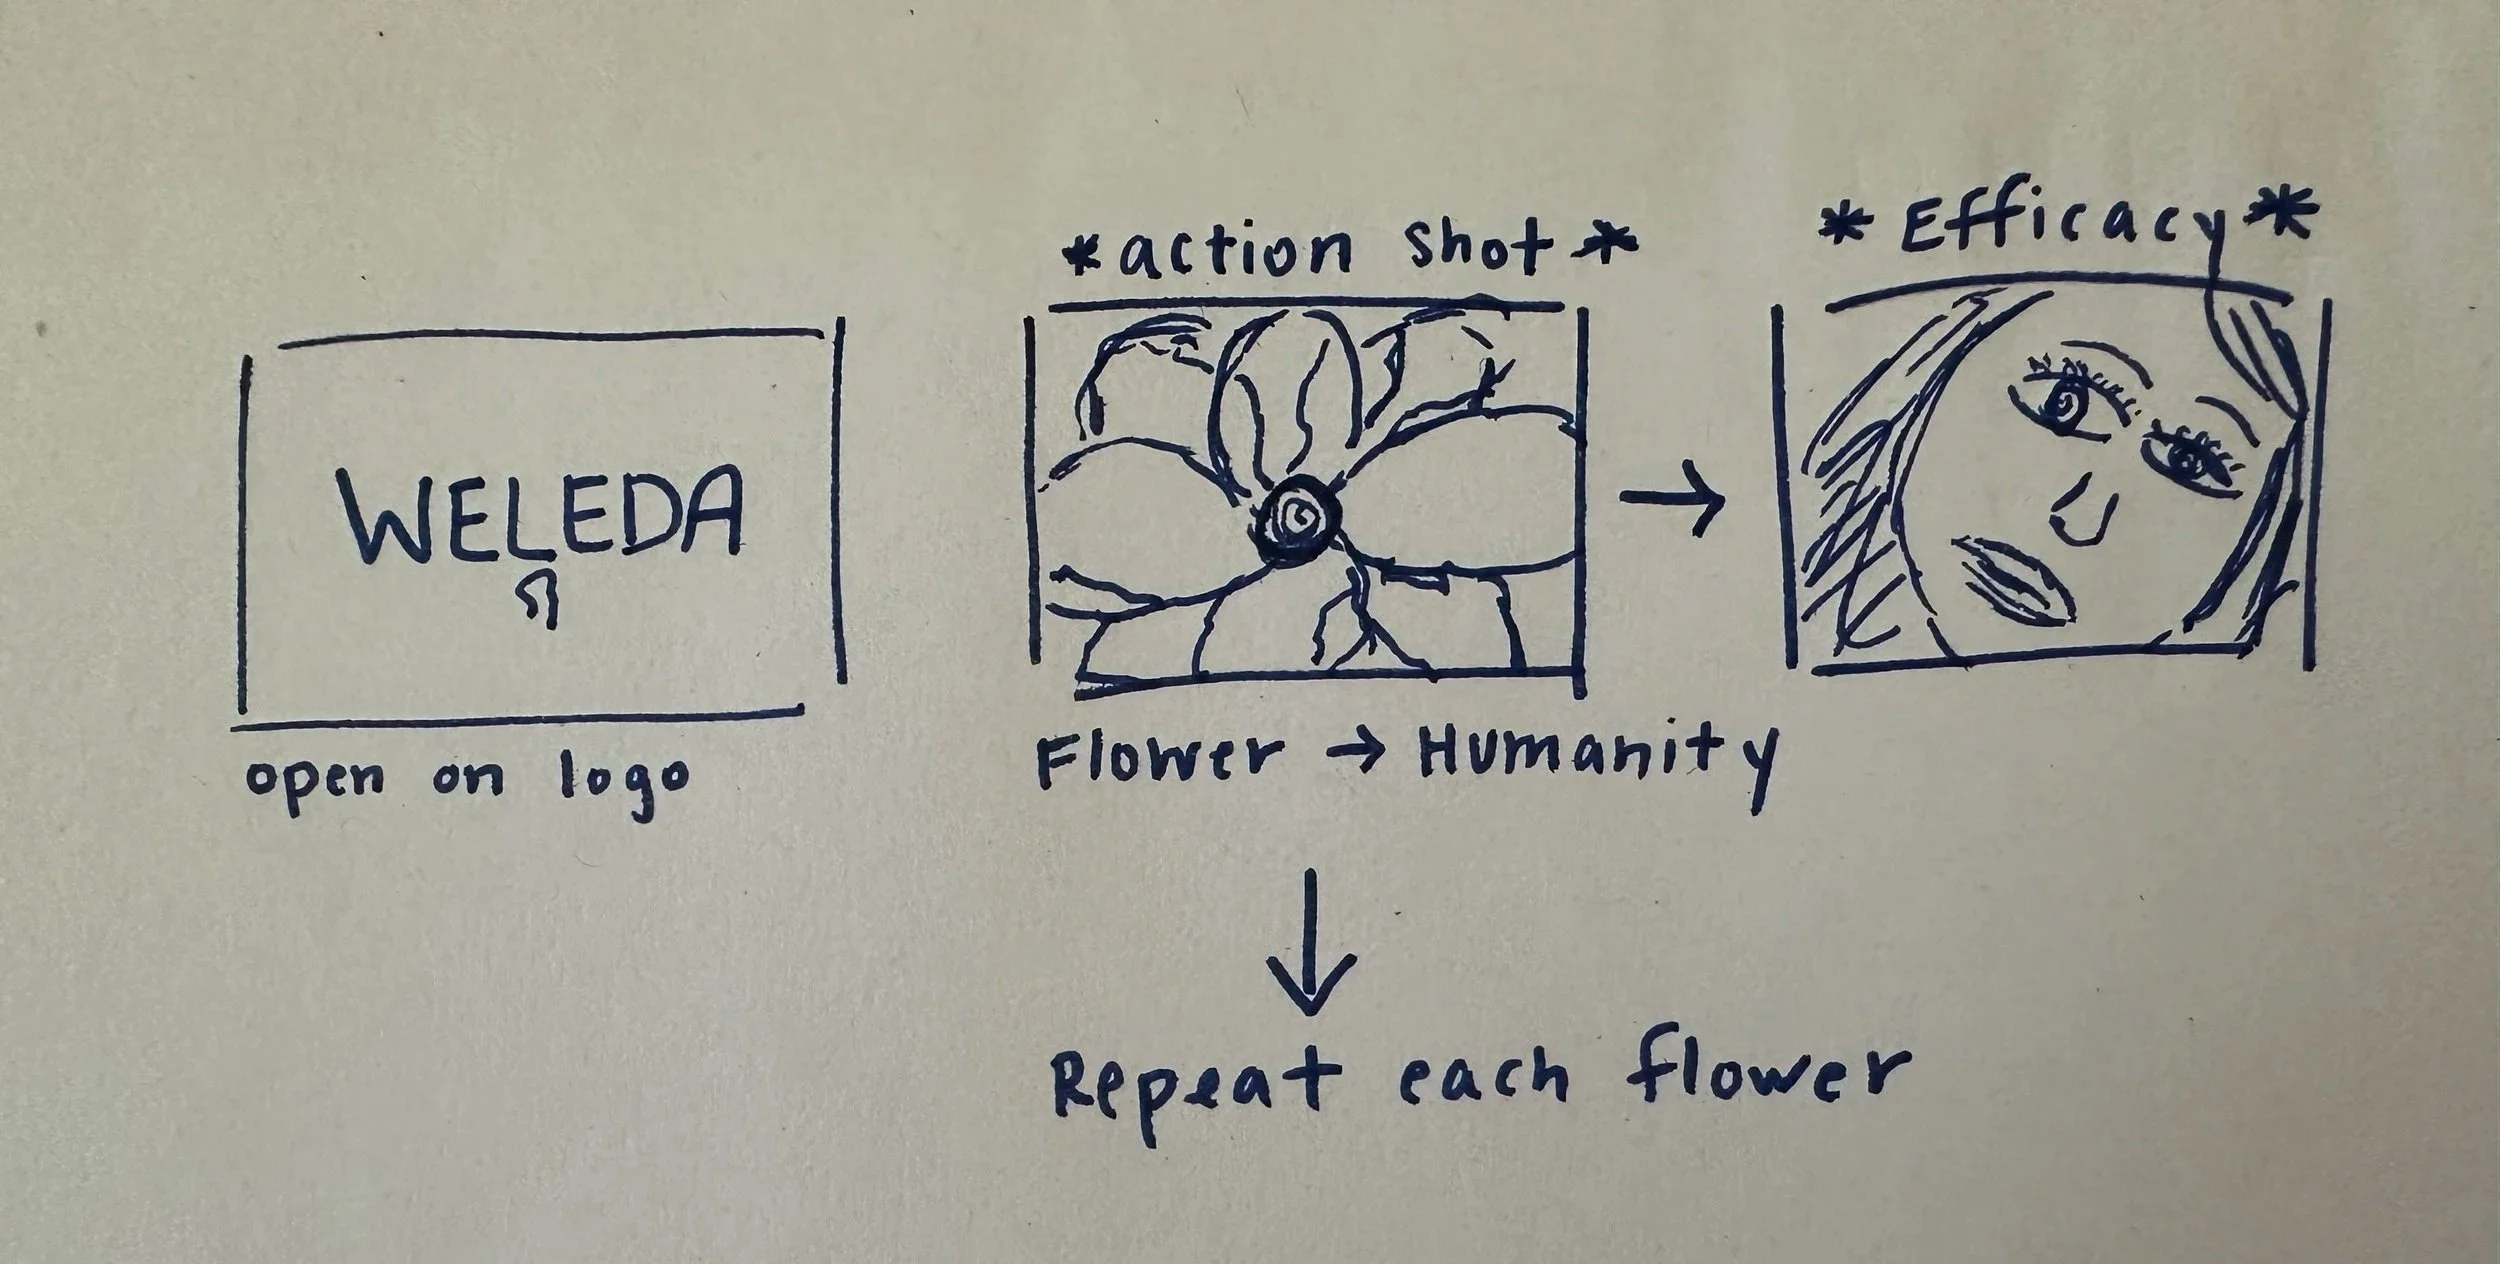 WELEDA
open on logo
*action shot*
Flower → Humanity
*Efficacy*
Repeat each flower